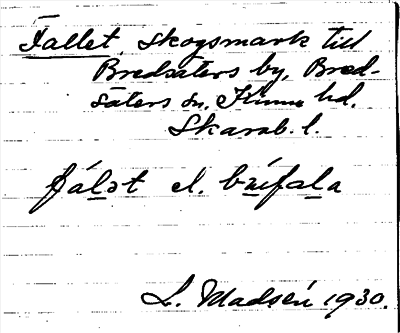 Fallet, skogsmark till
Bredsäters by, Bred-
säters sn, Kinne hd.
Skarab. l.
fálət el. búfala
L. Madsén 1930.